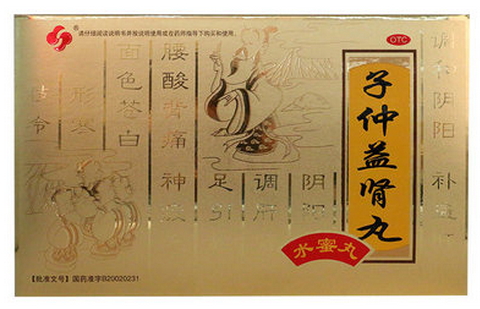 请仔细阅读说明书并按说明使用或在药师指导下购买和使用。
OTC
调和阴阳 补
子仲益肾丸
水蜜丸
阴阳
调
足
腰酸背痛 神疲
面色苍白
形寒
【批准文号】国药准字B20020231